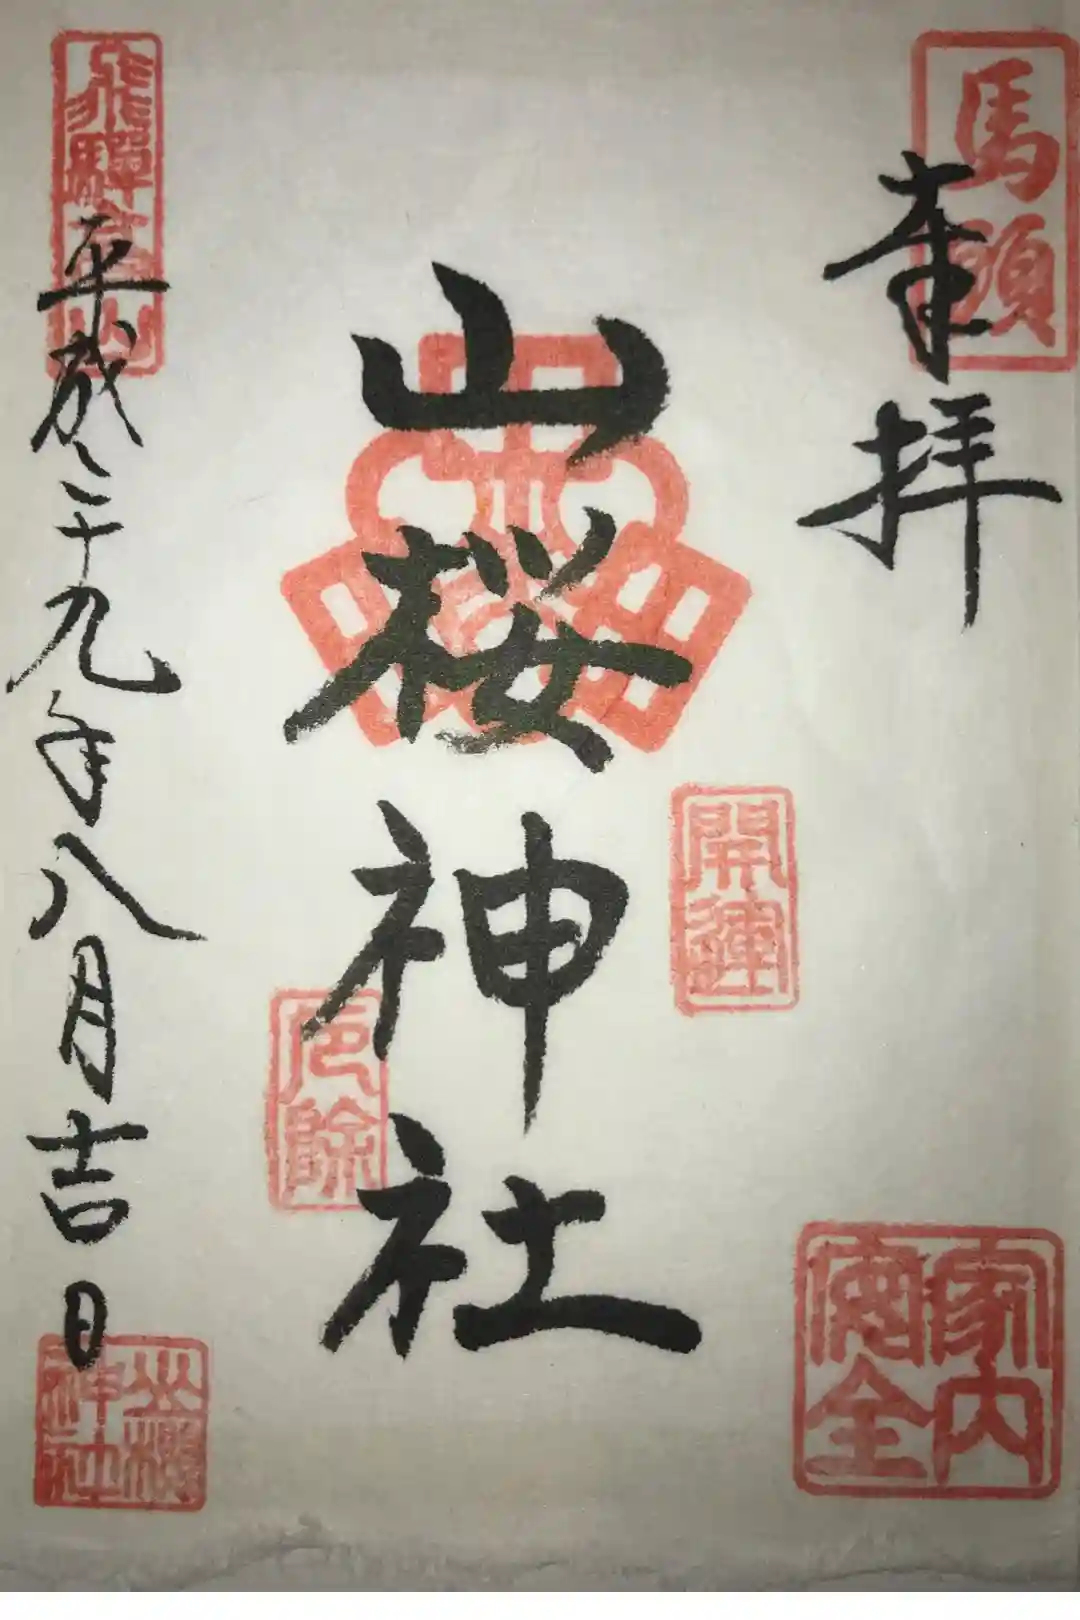 馬頭
奉拝
山桜神社
開運
厄除
家内安全
飛騨高山
平成二十九年八月吉日
山桜神社